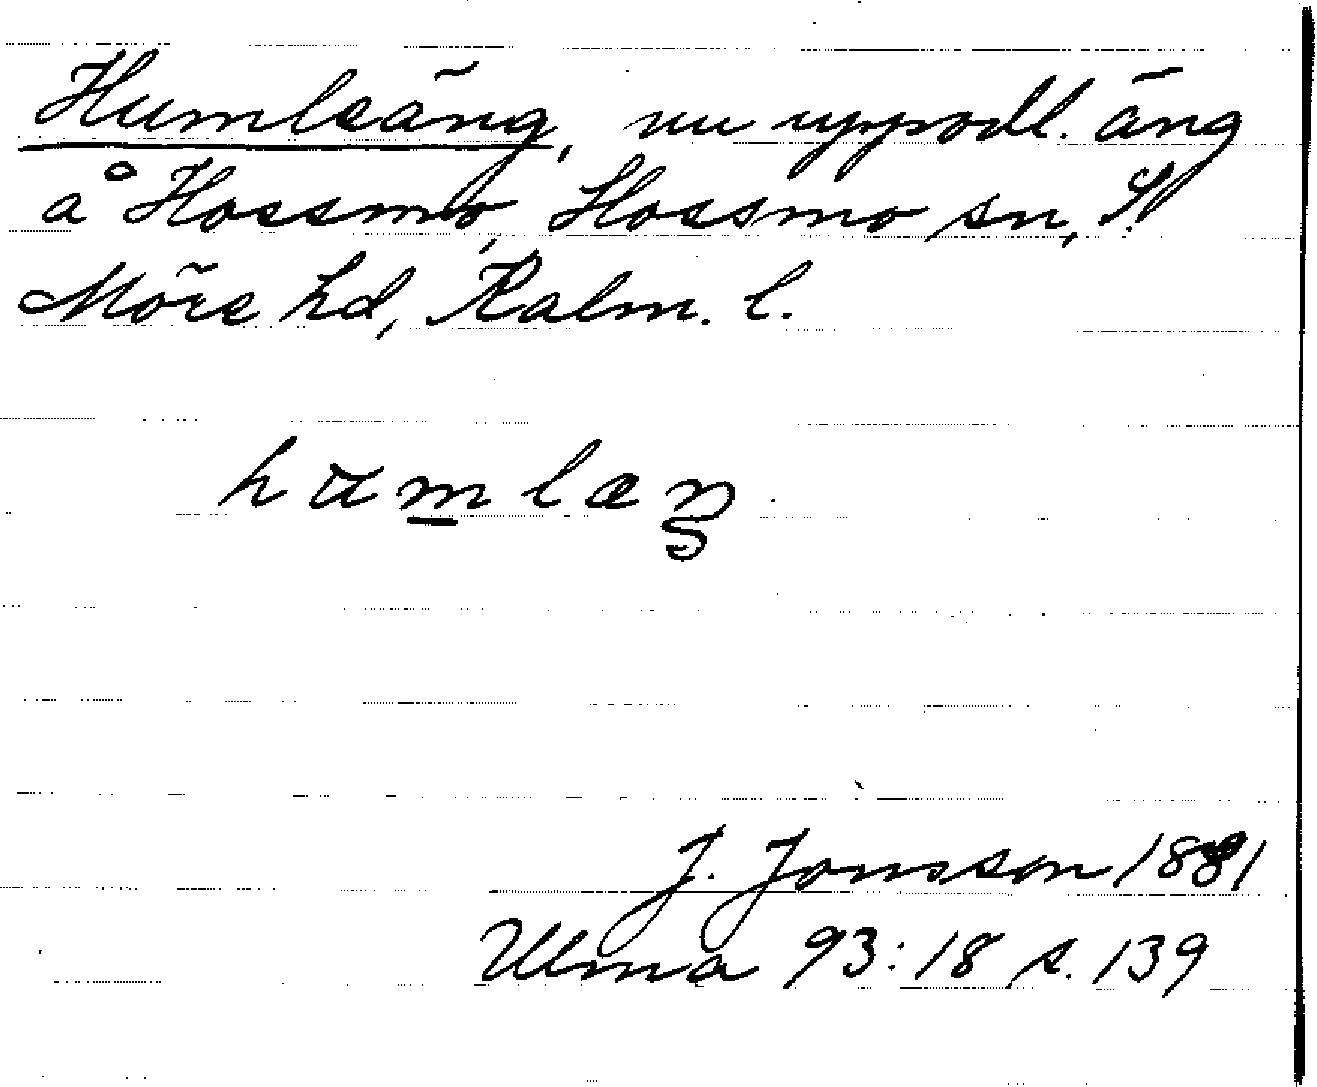 Humleäng, nu uppodl. äng
å Hossmo, Hossmo sn, N.
Möre hd, Kalm. l.
humlæŋ
J. Jonsson 1881
Ulma 93:18 s. 139